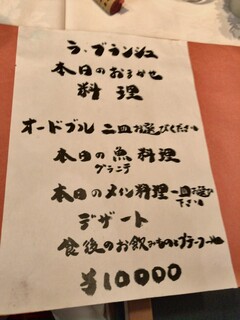 ラ・ブランシュ
本日のおまかせ
料理
オードブル 二皿お選びください
本日の魚料理
グラニテ
本日のメイン料理 一皿お選び
下さい
デザート
食後のお飲みものとプティフール
¥10000